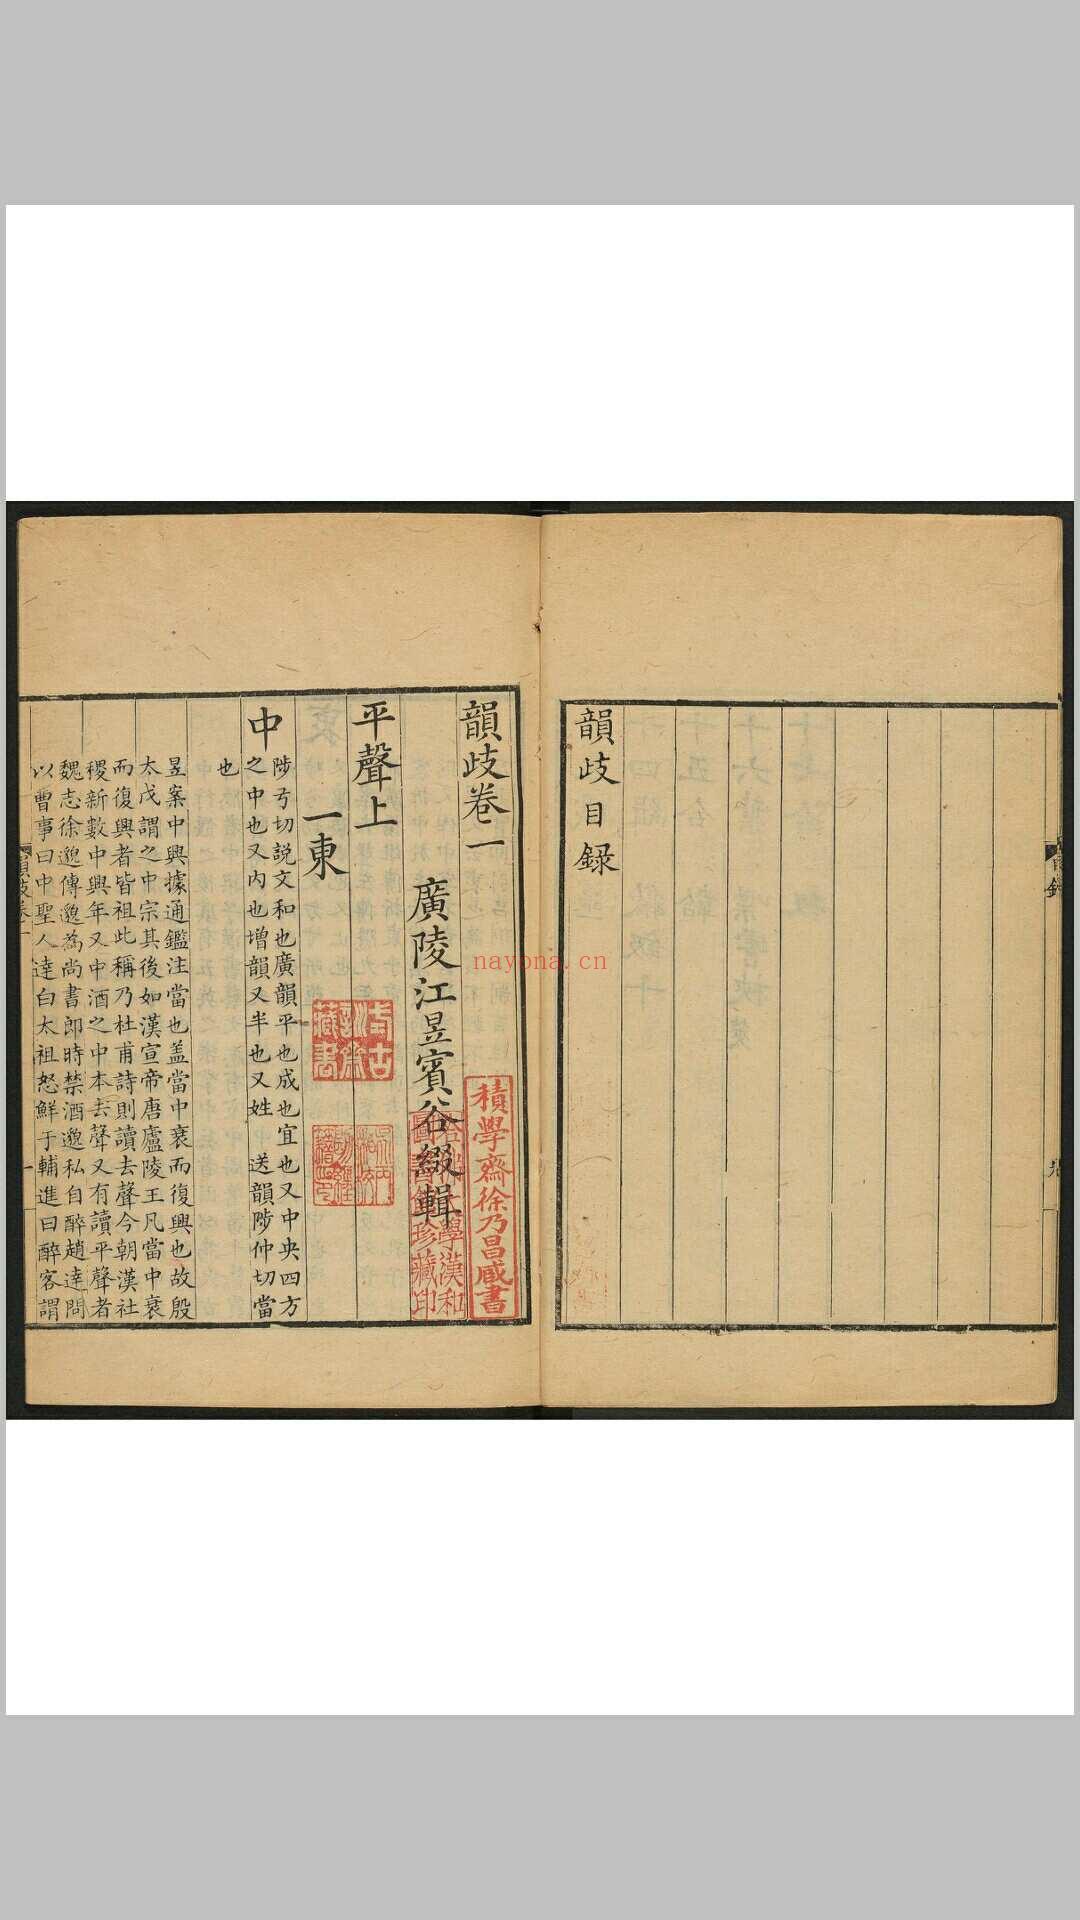 韻歧目録
韻歧卷一
廣陵江昱賓谷綴輯
平聲上
一東
中
陟亏切説文和也廣韻平也成也宜也又中央四方
之中也又内也増韻又半也又姓 送韻陟仲切當
也
昱案中興據通鑑注當也盖當中衰而復興也故殷
太戊謂之中宗其後如漢宣帝唐廬陵王凡當中衰
而復興者皆祖此稱乃杜甫詩則讀去聲今朝漢社
稷新數中興年又中酒之中本去聲又有讀平聲者
魏志徐邈傳邈為尚書郎時禁酒邈私自醉趙達問
以曹事曰中聖人達白太祖怒鮮于輔進曰醉客謂
積學齋徐乃昌臧書
學漢和
圖書館珍藏印
藏書
nayona.cn